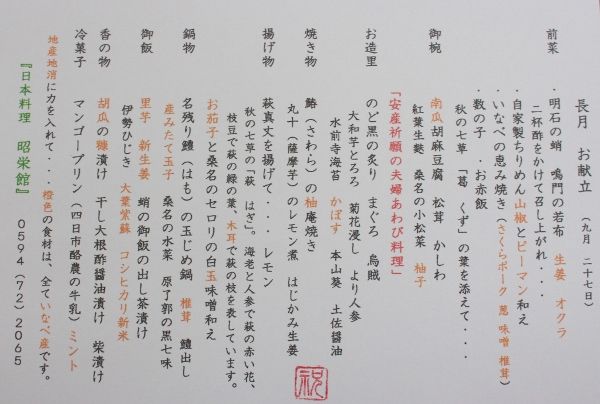 長月　お献立　（九月　二十七日）
前菜　・明石の蛸　鳴門の若布　生姜　オクラ
二杯酢をかけて召し上がれ・・・
・自家製ちりめん山椒とピーマン和え
・いなべの恵み焼き（さくらポーク　葱　味噌　椎茸）
・数の子　・お赤飯
秋の七草　「葛　くず」の葉を添えて・・・
御椀　南瓜胡麻豆腐　松茸　かしわ
紅葉生麩　桑名の小松菜　柚子
「安産祈願の夫婦あわび料理」
お造里　のど黒の炙り　まぐろ　烏賊
大和芋とろろ　菊花浸し　より人参
水前寺海苔　かぼす　本山葵　土佐醤油
焼き物　鰆（さわら）の柚庵焼き
丸十（薩摩芋）のレモン煮　はじかみ生姜
揚げ物　萩真丈を揚げて・・・　レモン
秋の七草の「萩　はぎ」。海老と人参で萩の赤い花、
枝豆で萩の緑の葉、木耳で萩の枝を表しています。
お茄子と桑名のセロリの白玉味噌和え
鍋物　名残り鱧（はも）の玉じめ鍋　椎茸　鱧出し
産みたて玉子　桑名の水菜　原了郭の黒七味
御飯　里芋　新生姜　蛸の御飯の出し茶漬け
伊勢ひじき　大葉紫蘇　コシヒカリ新米
香の物　胡瓜の糠漬け　干し大根酢醤油漬け　柴漬け
冷菓子　マンゴープリン（四日市酪農の牛乳）ミント
地産地消に力を入れて・・・橙色の食材は、全ていなべ産です。
『日本料理　昭栄館』　０５９４（７２）２０６５
祝